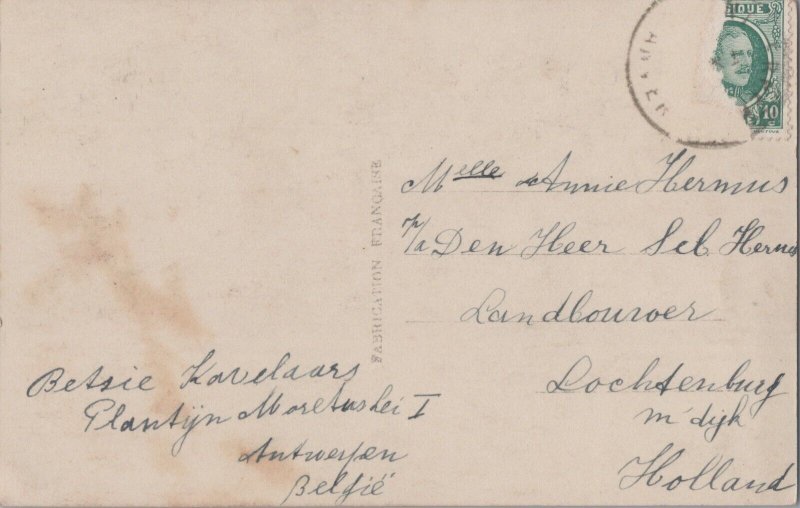 GIQUE
10
Melle Annie Hermus
p/a Den Heer Seb Hermus
Landbouwer
Lochtenburg
m'dijk
Holland
FABRICATION FRANÇAISE
Betsie Kavelaars
Plantijn Moretuslei I
Antwerpen
België